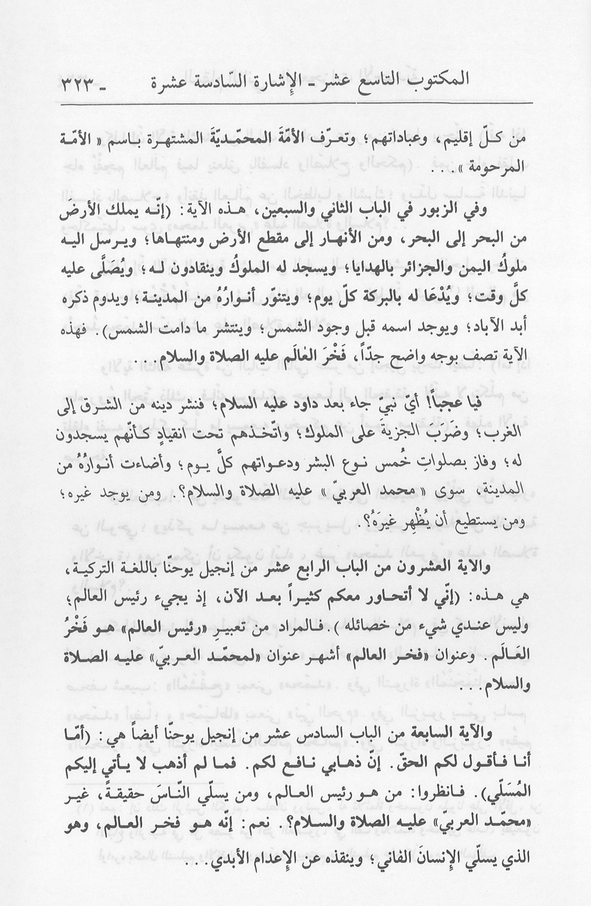 المكتوب التاسع عشر ـ الإشارة السّادسة عشرة ـ ٣٢٣
من كلّ إقليم، وعباداتهم؛ وتعرّف الأمّةَ المحمّديّةَ المشتهرة بـاسم « الأمّـة
المرحومة »...
وفي الزبور في الباب الثاني والسبعين، هـذه الآية: (إنّـه يملك الأرضَ
من البحر إلى البحر، ومن الأنهـار إلى مقطع الأرض ومنتهـاها؛ ويـرسل اليـه
ملوكُ اليمن والجزائر بالهدايا؛ ويسجد له الملوكُ وينقادون لـه؛ ويُصَلَّى عليه
كلَّ وقت؛ ويُدْعَا له بالبركة كلّ يوم؛ ويتنوّر أنـوارُهُ من المدينـة؛ ويدوم ذكره
أبد الآباد؛ ويوجد اسمه قبل وجود الشمس؛ وينتشر ما دامت الشمس). فهذه
الآية تصف بوجه واضح جدّاً، فَخْرَ العٰالَم عليه الصلاة والسلام...
فيا عجباً! أيّ نبيّ جاء بعد داود عليه السلام؛ فنشر دينه من الشرق إلى
الغرب؛ وضَرَبَ الجزيةَ على الملوك؛ واتّخذهم تحت انقيادٍ كـأنّهم يسجدون
له؛ وفاز بصلواتِ خُمس نـوع البشر ودعـواتهم كلَّ يـوم؛ وأضاءت أنـوارُهُ من
المدينة، سوى « محمد العربيّ » عليه الصلاة والسلام؟. ومن يوجد غيره؛
ومن يستطيع أن يُظْهِر غيرَهُ؟.
والاية العشرون من الباب الرابع عشر من إنجيل يوحنّا باللغة التركية،
هي هذه: (إنّي لا أتحاور معكم كثيـراً بعد الآن، إذ يجيء رئيس العالم؛
وليس عندي شيء من خصائله ). فـالمراد من تعبيـرِ «رئيس العالم» هـو فَخْرُ
العٰالَـم. وعنوان «فخـر العالم» أشهـر عنوان «لمحمّـد العـربيّ» عليـه الصلاة
والسلام...
والآية السابعة من الباب السادس عشر من إنجيل يوحنّا أيضاً هي: (أمّـا
أنـا فـأقـول لكم الحقّ. إنّ ذهـابي نـافـع لكم. فمـا لم أذهب لا يـأتي إليكم
المُسَلّي). فـانظروا: من هـو رئيس العالم، ومن يسلّي النّـاسَ حقيقـةً، غيـر
«محمّـد العربيّ» عليـه الصلاة والسلام؟. نعم: إنّـه هـو فخـر العـالم، وهو
الذي يسلّي الإنسانَ الفاني؛ وينقذه عن الإعدام الأبدي...